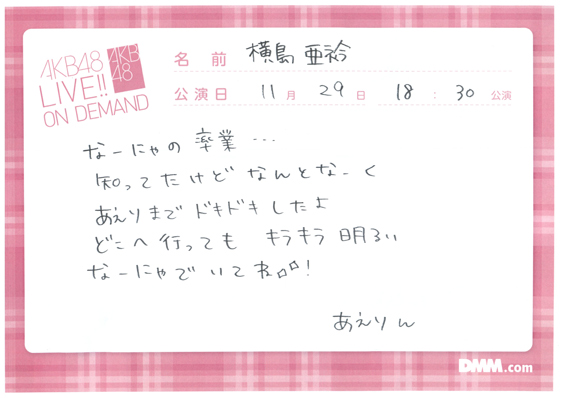 AKB48
LIVE!!
ON DEMAND
AKB
48
名 前 横島 亜衿
公演日 11 月 29 日 18 : 30 公演
なーにゃの 卒業…
知ってたけど なんとなーく
あえりまで ドキドキ したよ
どこへ 行っても キラキラ 明るい
なーにゃで いてね!
あえりん
DMM.com